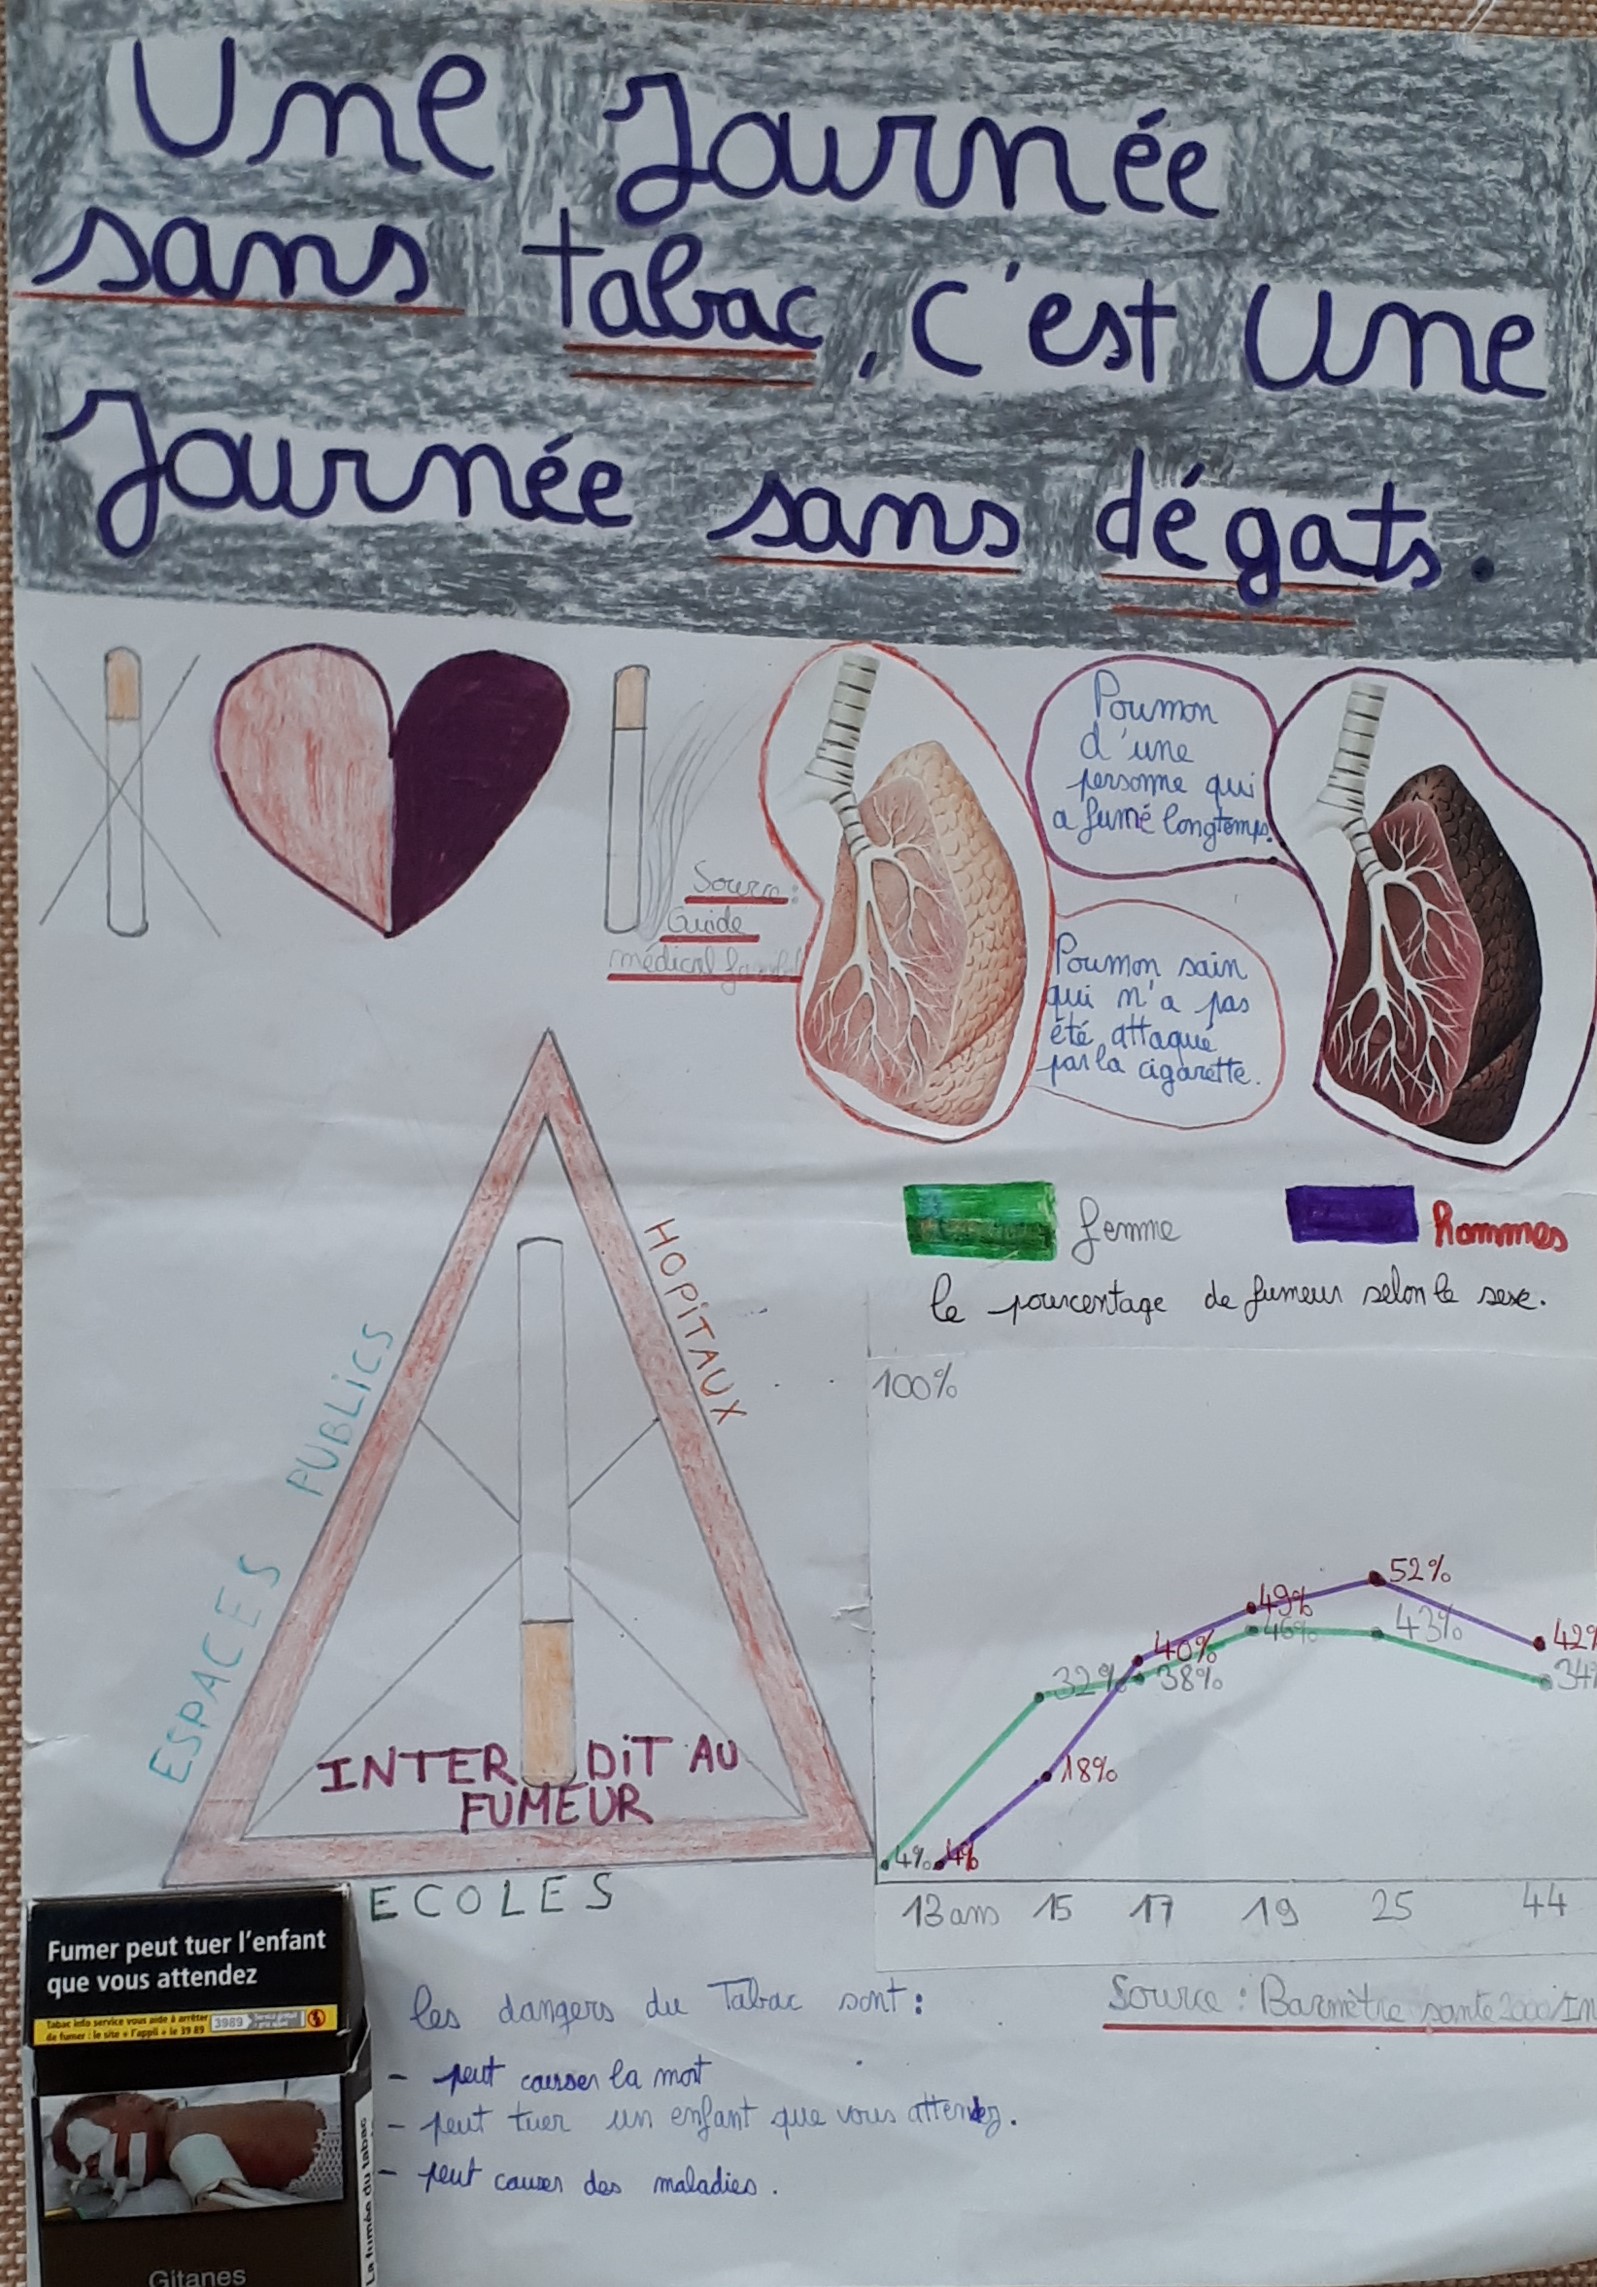 Une Journée
sans tabac, c'est une
Journée sans dégats.
Source:
Guide
médical
Poumon
d'une
personne qui
a fumé longtemps.
Poumon sain
qui n'a pas
été attaqué
par la cigarette.
femme
hommes
le pourcentage de fumeur selon le sexe.
ESPACES PUBLICS
HOPITAUX
INTERDIT AU
FUMEUR
ECOLES
100%
52%
49%
46%
43%
42%
40%
38%
32%
34%
18%
4%
4%
13 ans 15 17 19 25 44
Source: Baromètre santé 2000/In
Fumer peut tuer l'enfant
que vous attendez
Tabac info service vous aide à arrêter
de fumer : le site + l'appli + le 39 89
3989
Gitanes
La fumée du tabac
les dangers du Tabac sont:
- peut causer la mort
- peut tuer un enfant que vous attendez.
- peut causer des maladies.